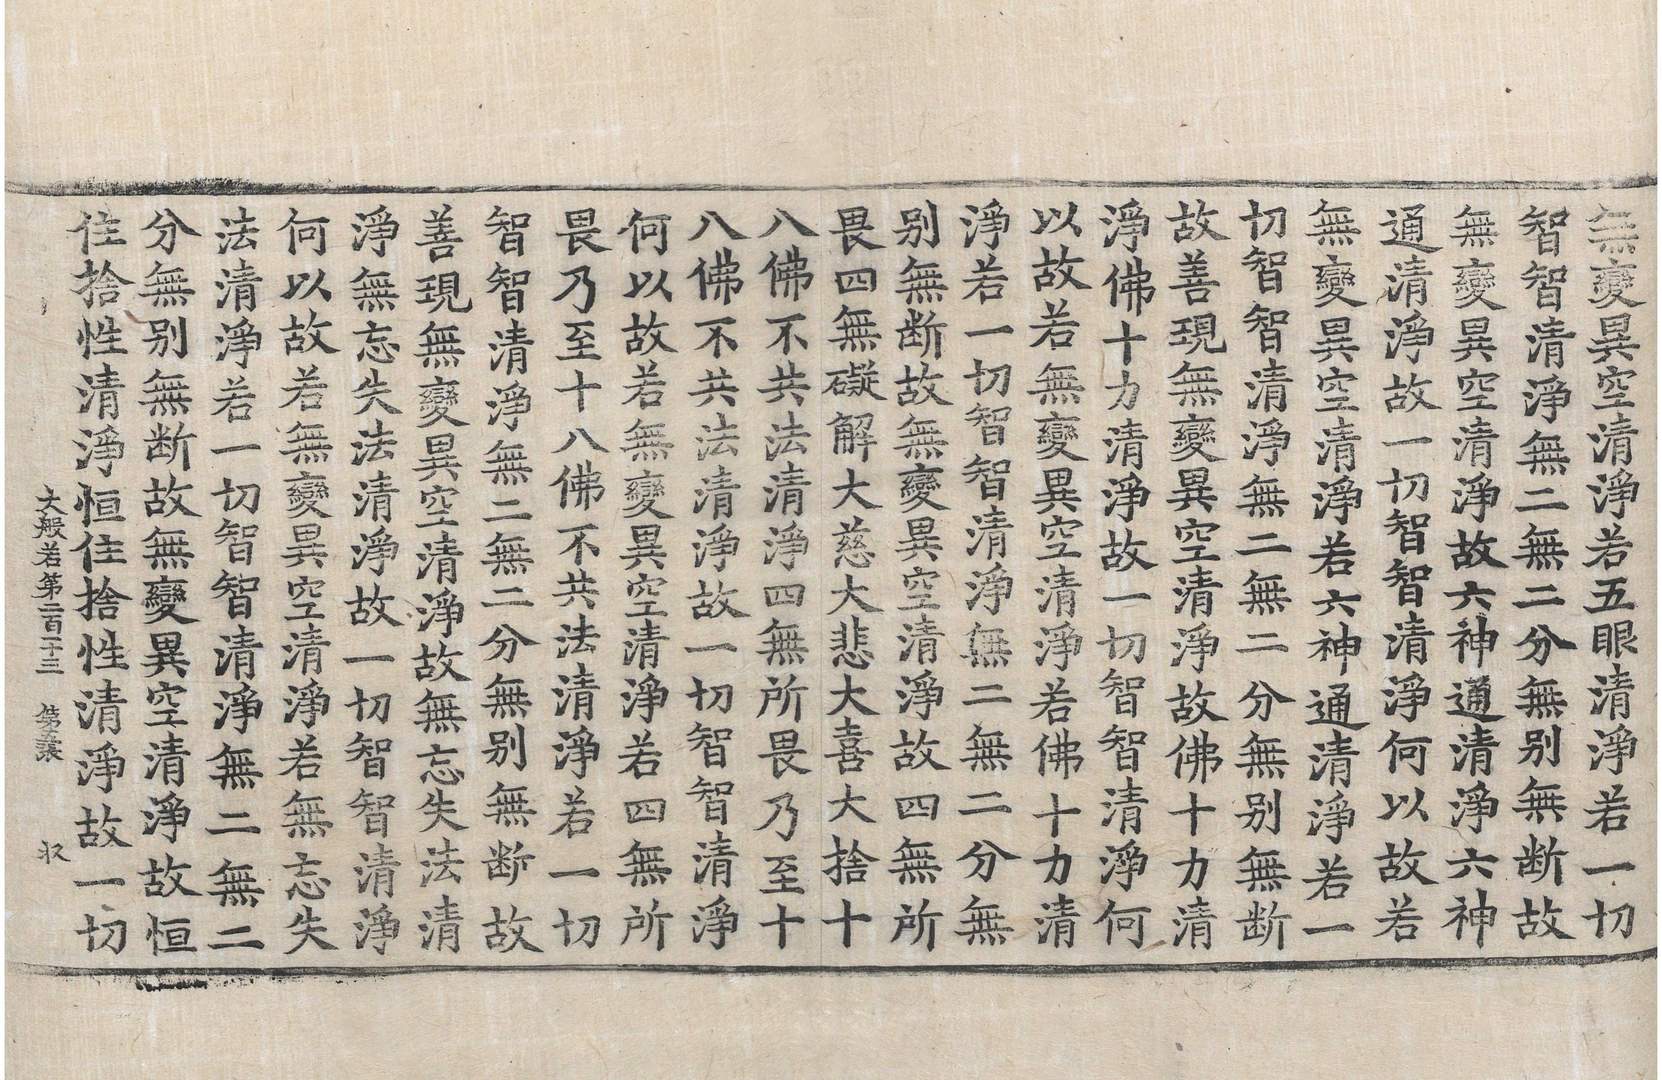 無變異空清淨若五眼清淨若一切
智智清淨無二無二分無别無断故
無變異空清淨故六神通清淨六神
通清淨故一切智智清淨何以故若
無變異空清淨若六神通清淨若一
切智智清淨無二無二分無别無断
故善現無變異空清淨故佛十力清
淨佛十力清淨故一切智智清淨何
以故若無變異空清淨若佛十力清
淨若一切智智清淨無二無二分無
别無断故無變異空清淨故四無所
畏四無礙解大慈大悲大喜大捨十
八佛不共法清淨四無所畏乃至十
八佛不共法清淨故一切智智清淨
何以故若無變異空清淨若四無所
畏乃至十八佛不共法清淨若一切
智智清淨無二無二分無别無断故
善現無變異空清淨故無忘失法清
淨無忘失法清淨故一切智智清淨
何以故若無變異空清淨若無忘失
法清淨若一切智智清淨無二無二
分無别無断故無變異空清淨故恒
住捨性清淨恒住捨性清淨故一切
大般若第二百十三 第五張 収